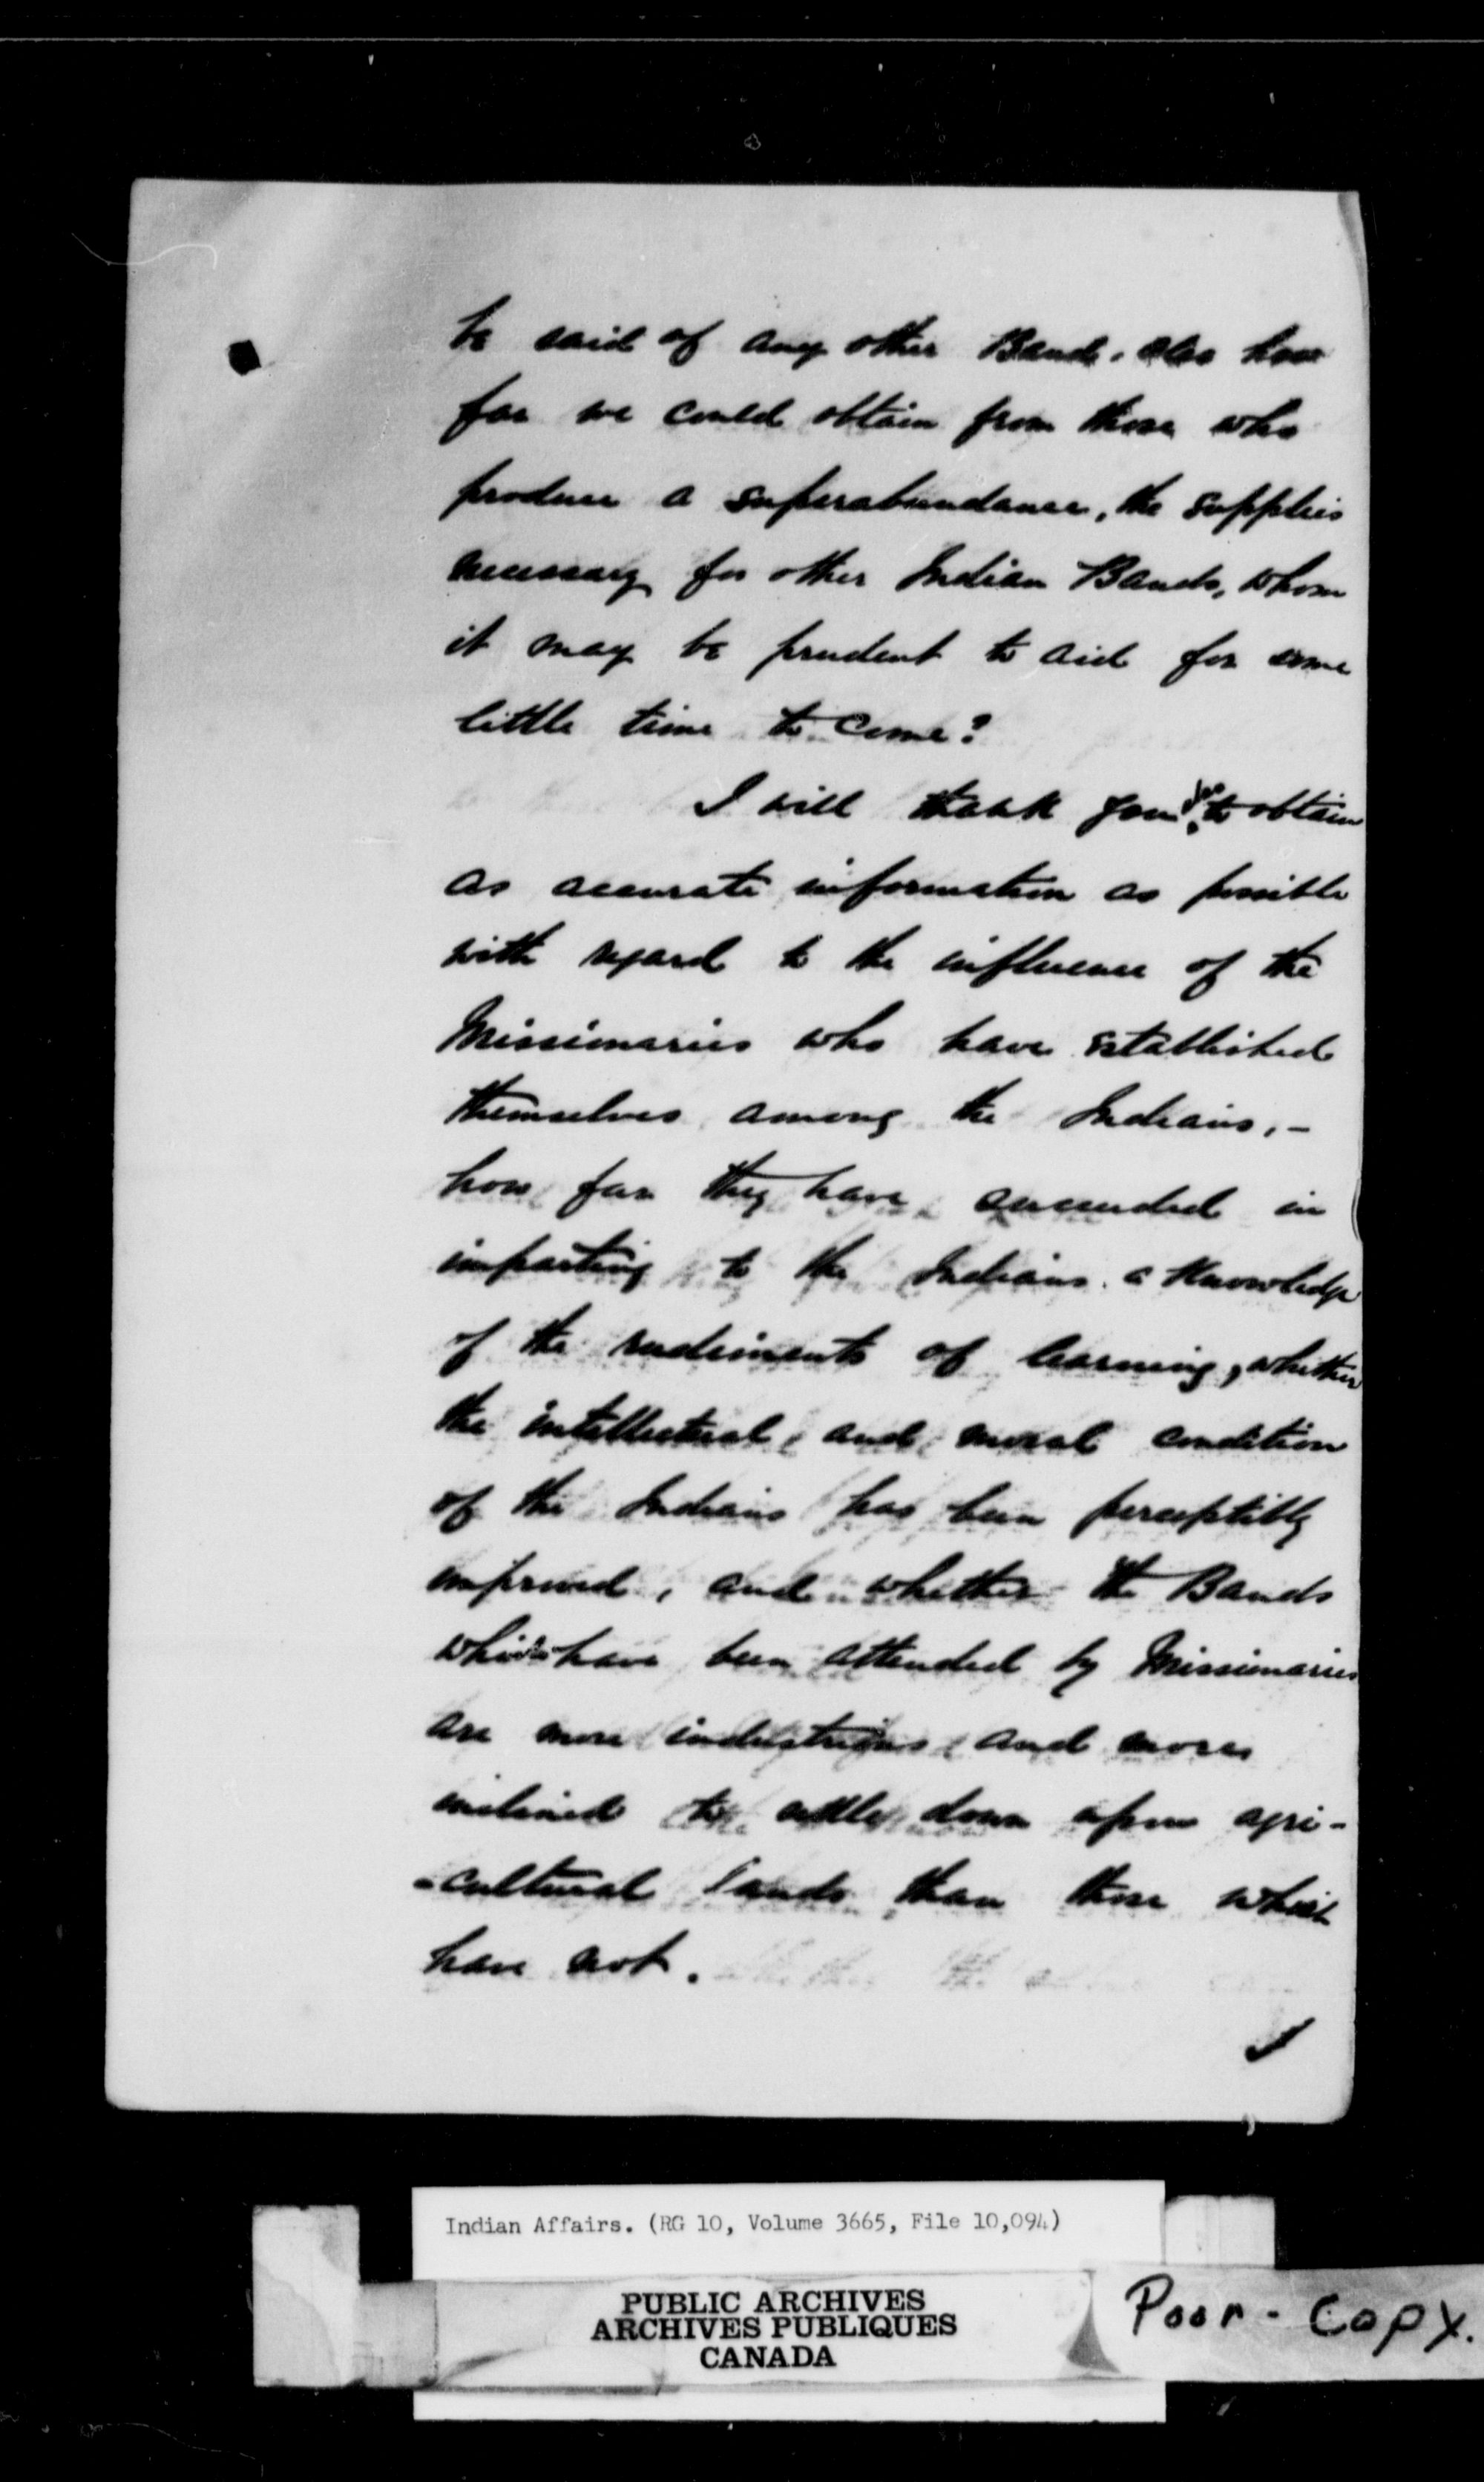 be said of any other Band. Also how
far we could obtain from those who
produce a superabundance, the supplies
necessary for other Indian Bands, whom
it may be prudent to aid for some
little time to come?
I will thank you to obtain
as accurate information as possible
with regard to the influence of the
Missionaries who have established
themselves among the Indians, -
how far they have succeeded in
imparting to the Indians a knowledge
of the rudiments of learning, whether
the intellectual and moral condition
of the Indians has been perceptibly
improved, and whether the Bands
which have been attended by Missionaries
are more industrious and more
inclined to settle down upon agri-
-cultural lands than those which
have not.
I
Indian Affairs. (RG 10, Volume 3665, File 10,094)
PUBLIC ARCHIVES
ARCHIVES PUBLIQUES
CANADA
Poor - Copy.